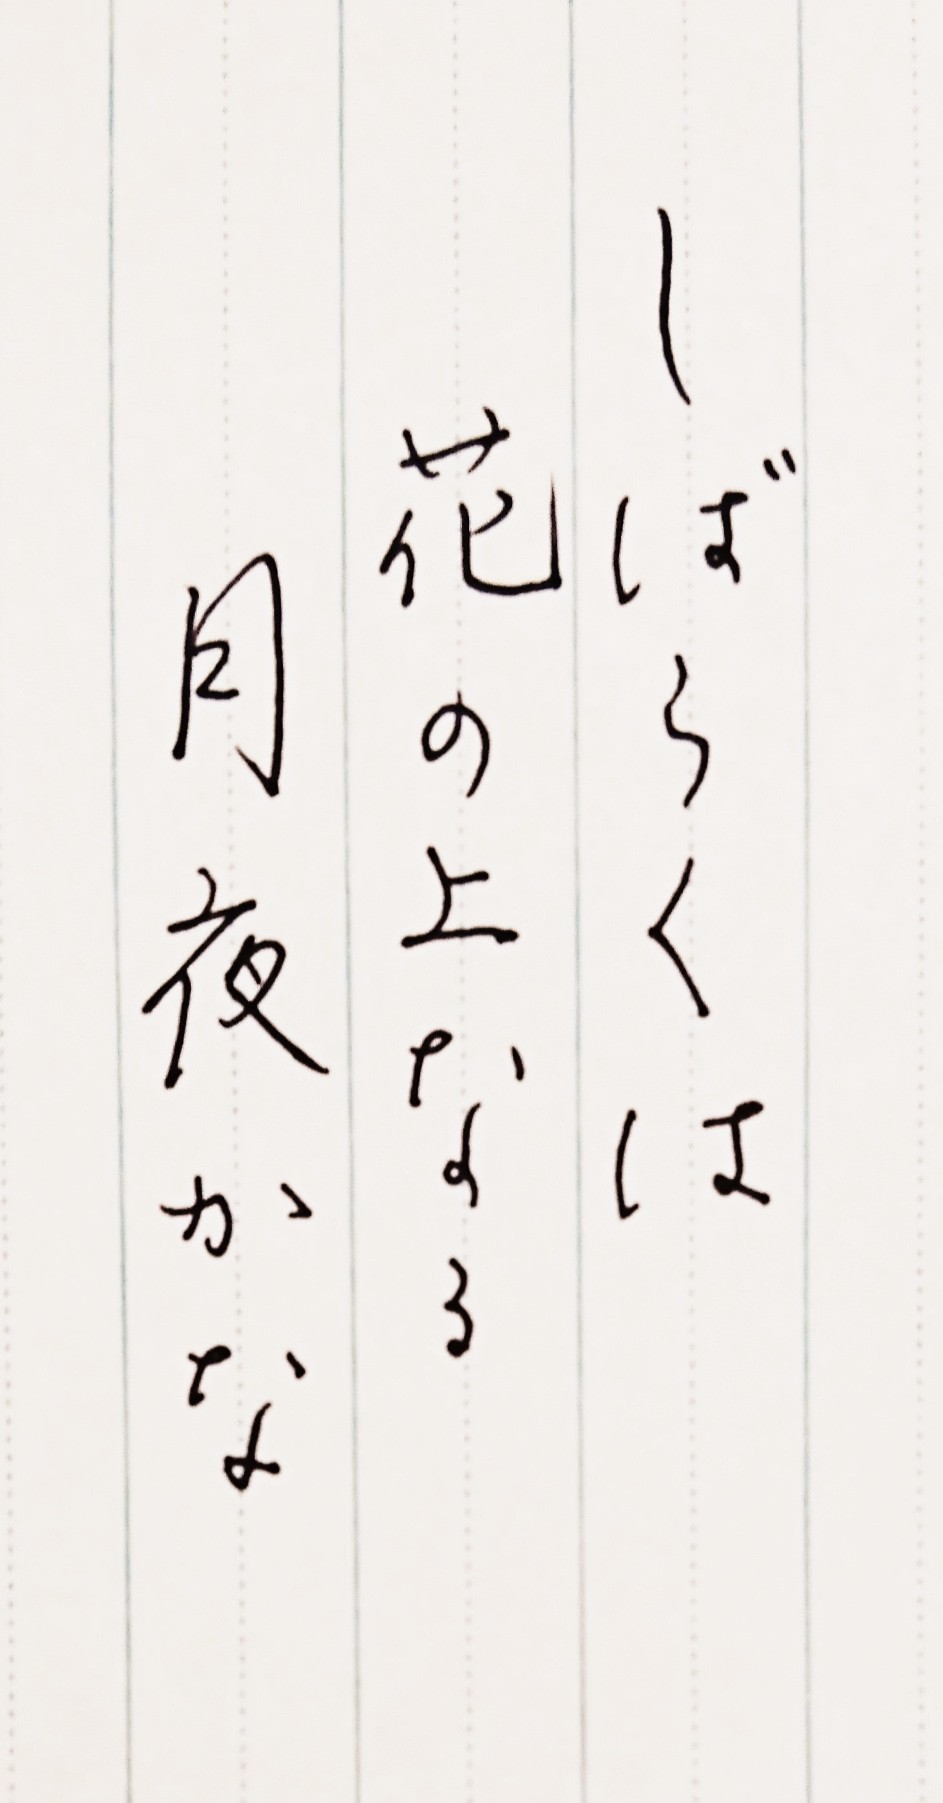 しばらくは
花の上なる
月夜かな